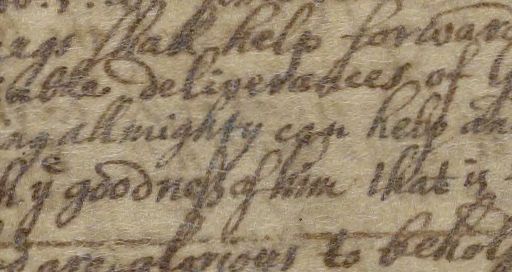 shall help forward
able deliverances of
ing allmighty can help an
h yͤ goodness of him that is
are glorious to behold